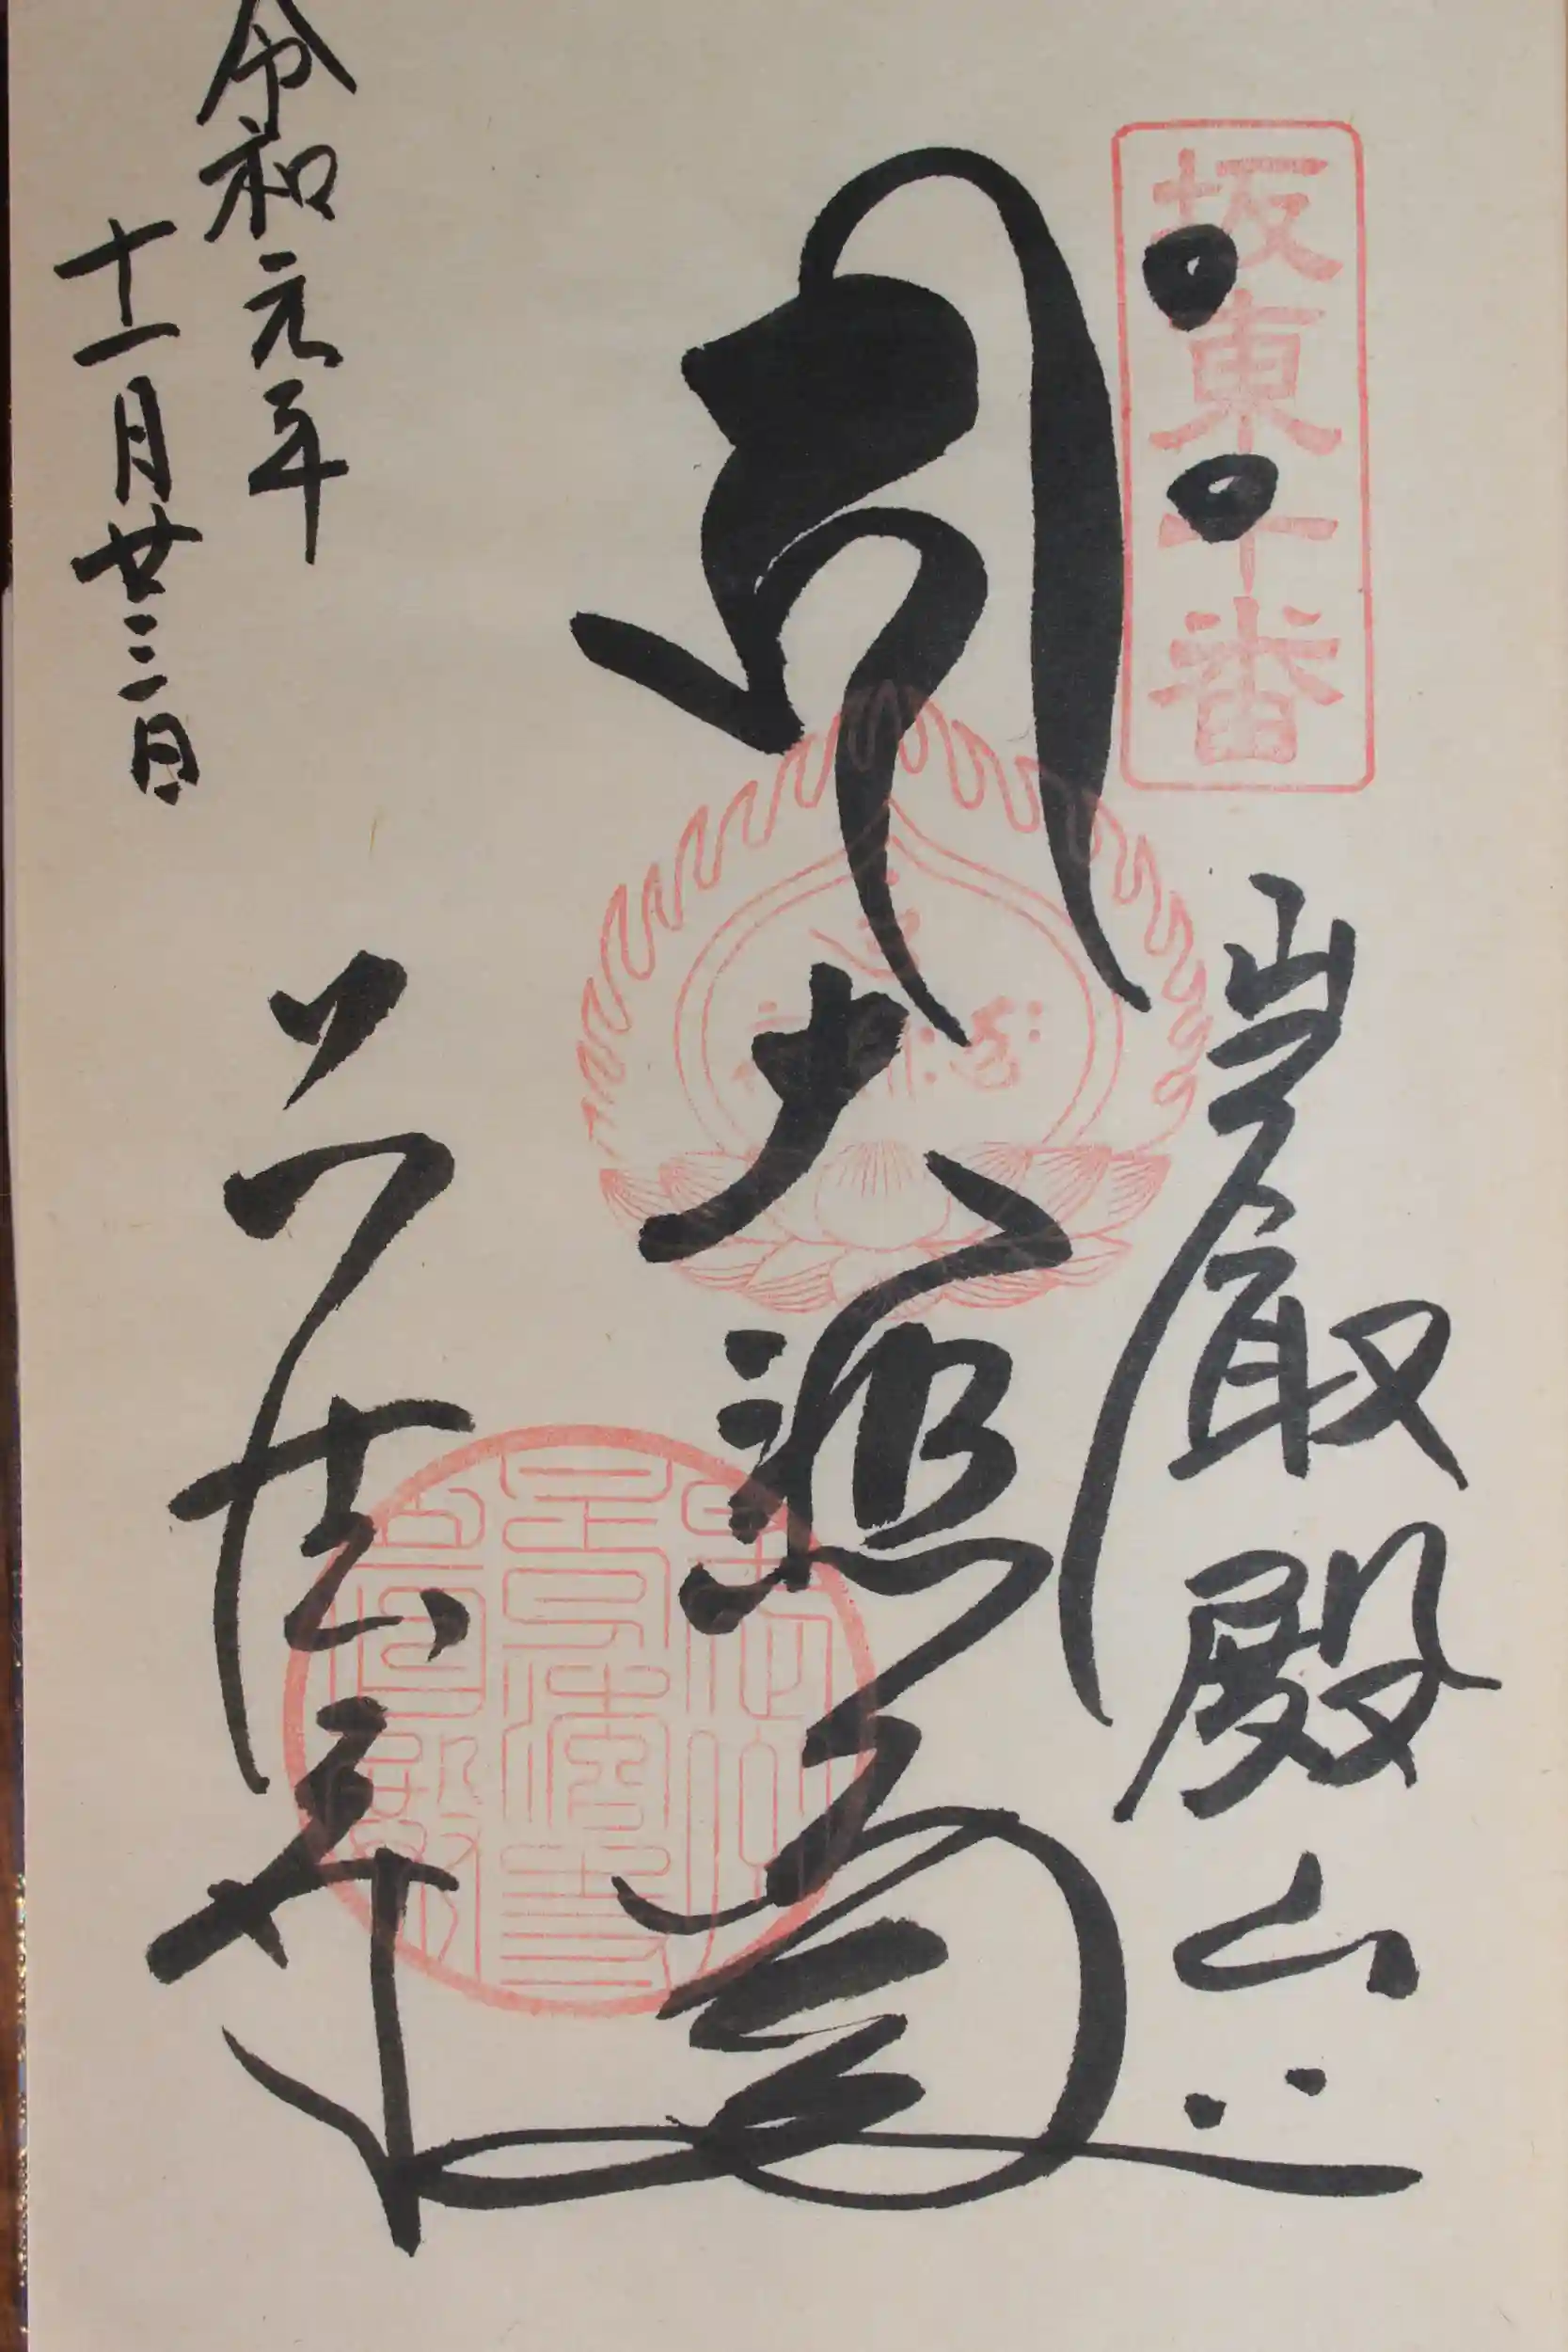 坂東十番
巌殿山
ह्रीः
大悲閣
正法寺
令和元年
十一月廿三日